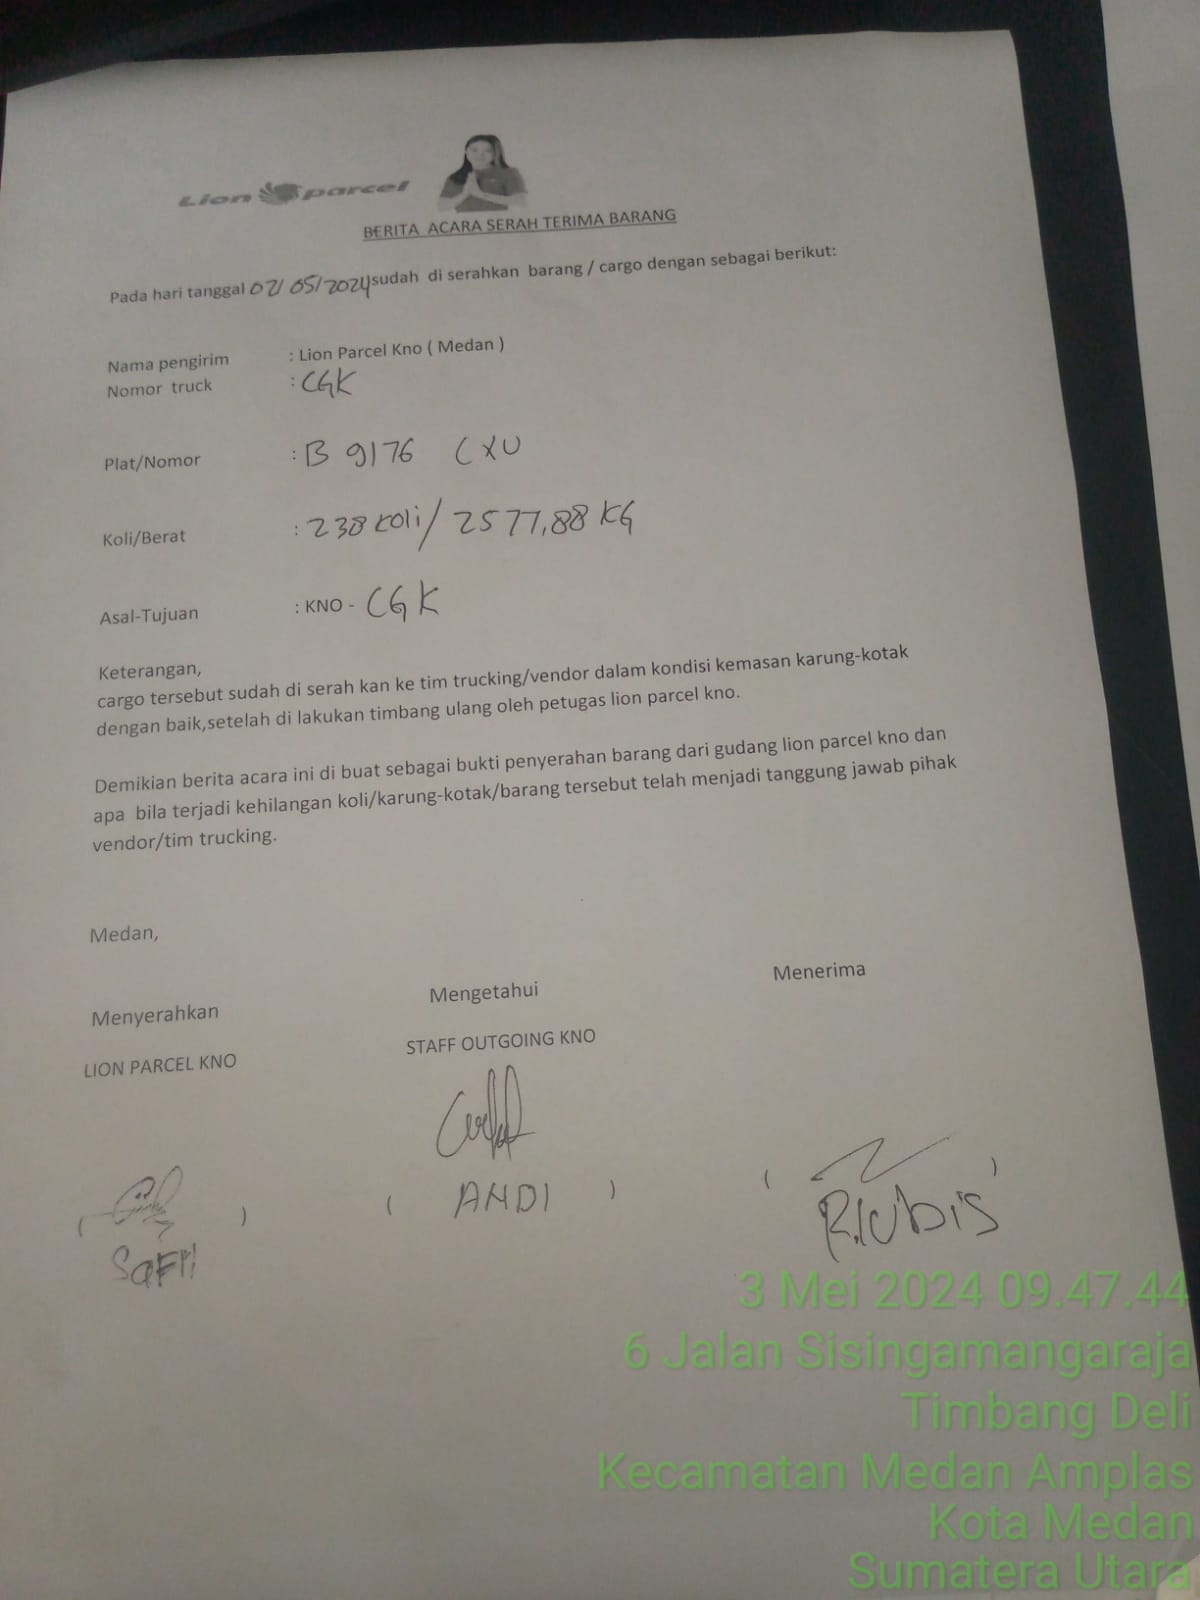 Lion parcel
BERITA ACARA SERAH TERIMA BARANG
Pada hari tanggal 02/05/2024 sudah di serahkan barang / cargo dengan sebagai berikut:
Nama pengirim : Lion Parcel Kno ( Medan )
Nomor truck : CGK
Plat/Nomor : B 9176 CXU
Koli/Berat : 238 Koli / 2577,88 KG
Asal-Tujuan : KNO - CGK
Keterangan,
cargo tersebut sudah di serah kan ke tim trucking/vendor dalam kondisi kemasan karung-kotak
dengan baik,setelah di lakukan timbang ulang oleh petugas lion parcel kno.
Demikian berita acara ini di buat sebagai bukti penyerahan barang dari gudang lion parcel kno dan
apa bila terjadi kehilangan koli/karung-kotak/barang tersebut telah menjadi tanggung jawab pihak
vendor/tim trucking.
Medan,
Menyerahkan Mengetahui Menerima
LION PARCEL KNO STAFF OUTGOING KNO
( ) ( ANDI ) ( )
SaFri R.lubis
3 Mei 2024 09.47.44
6 Jalan Sisingamangaraja
Timbang Deli
Kecamatan Medan Amplas
Kota Medan
Sumatera Utara